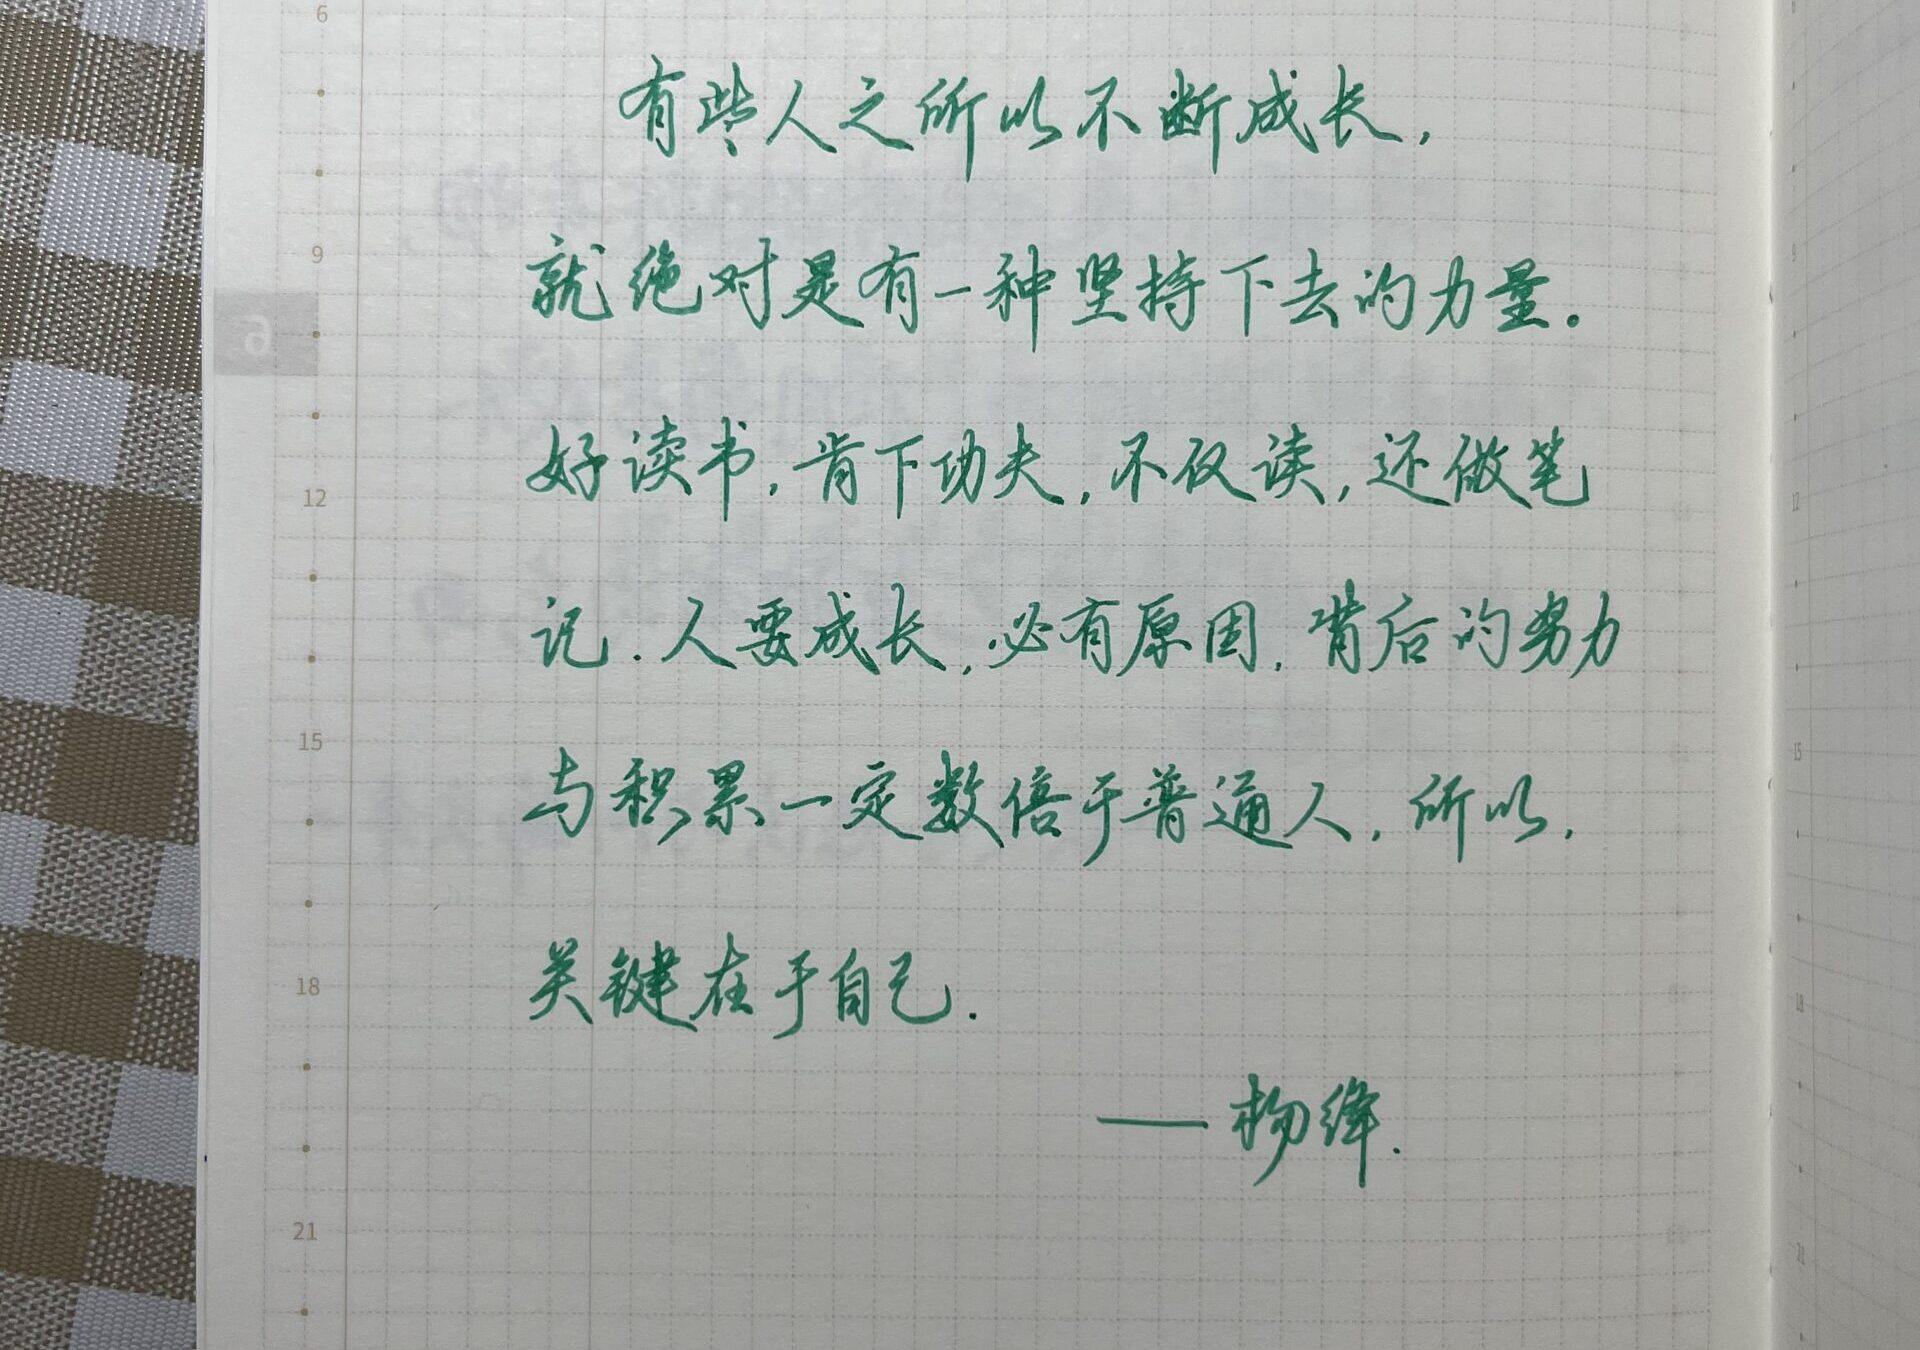 6
有些人之所以不断成长,
9
就绝对是有一种坚持下去的力量。
6
12
好读书,肯下功夫,不仅读,还做笔
记.人要成长,必有原因,背后的努力
15
与积累一定数倍于普通人,所以,
18
关键在于自己.
——杨绛.
21